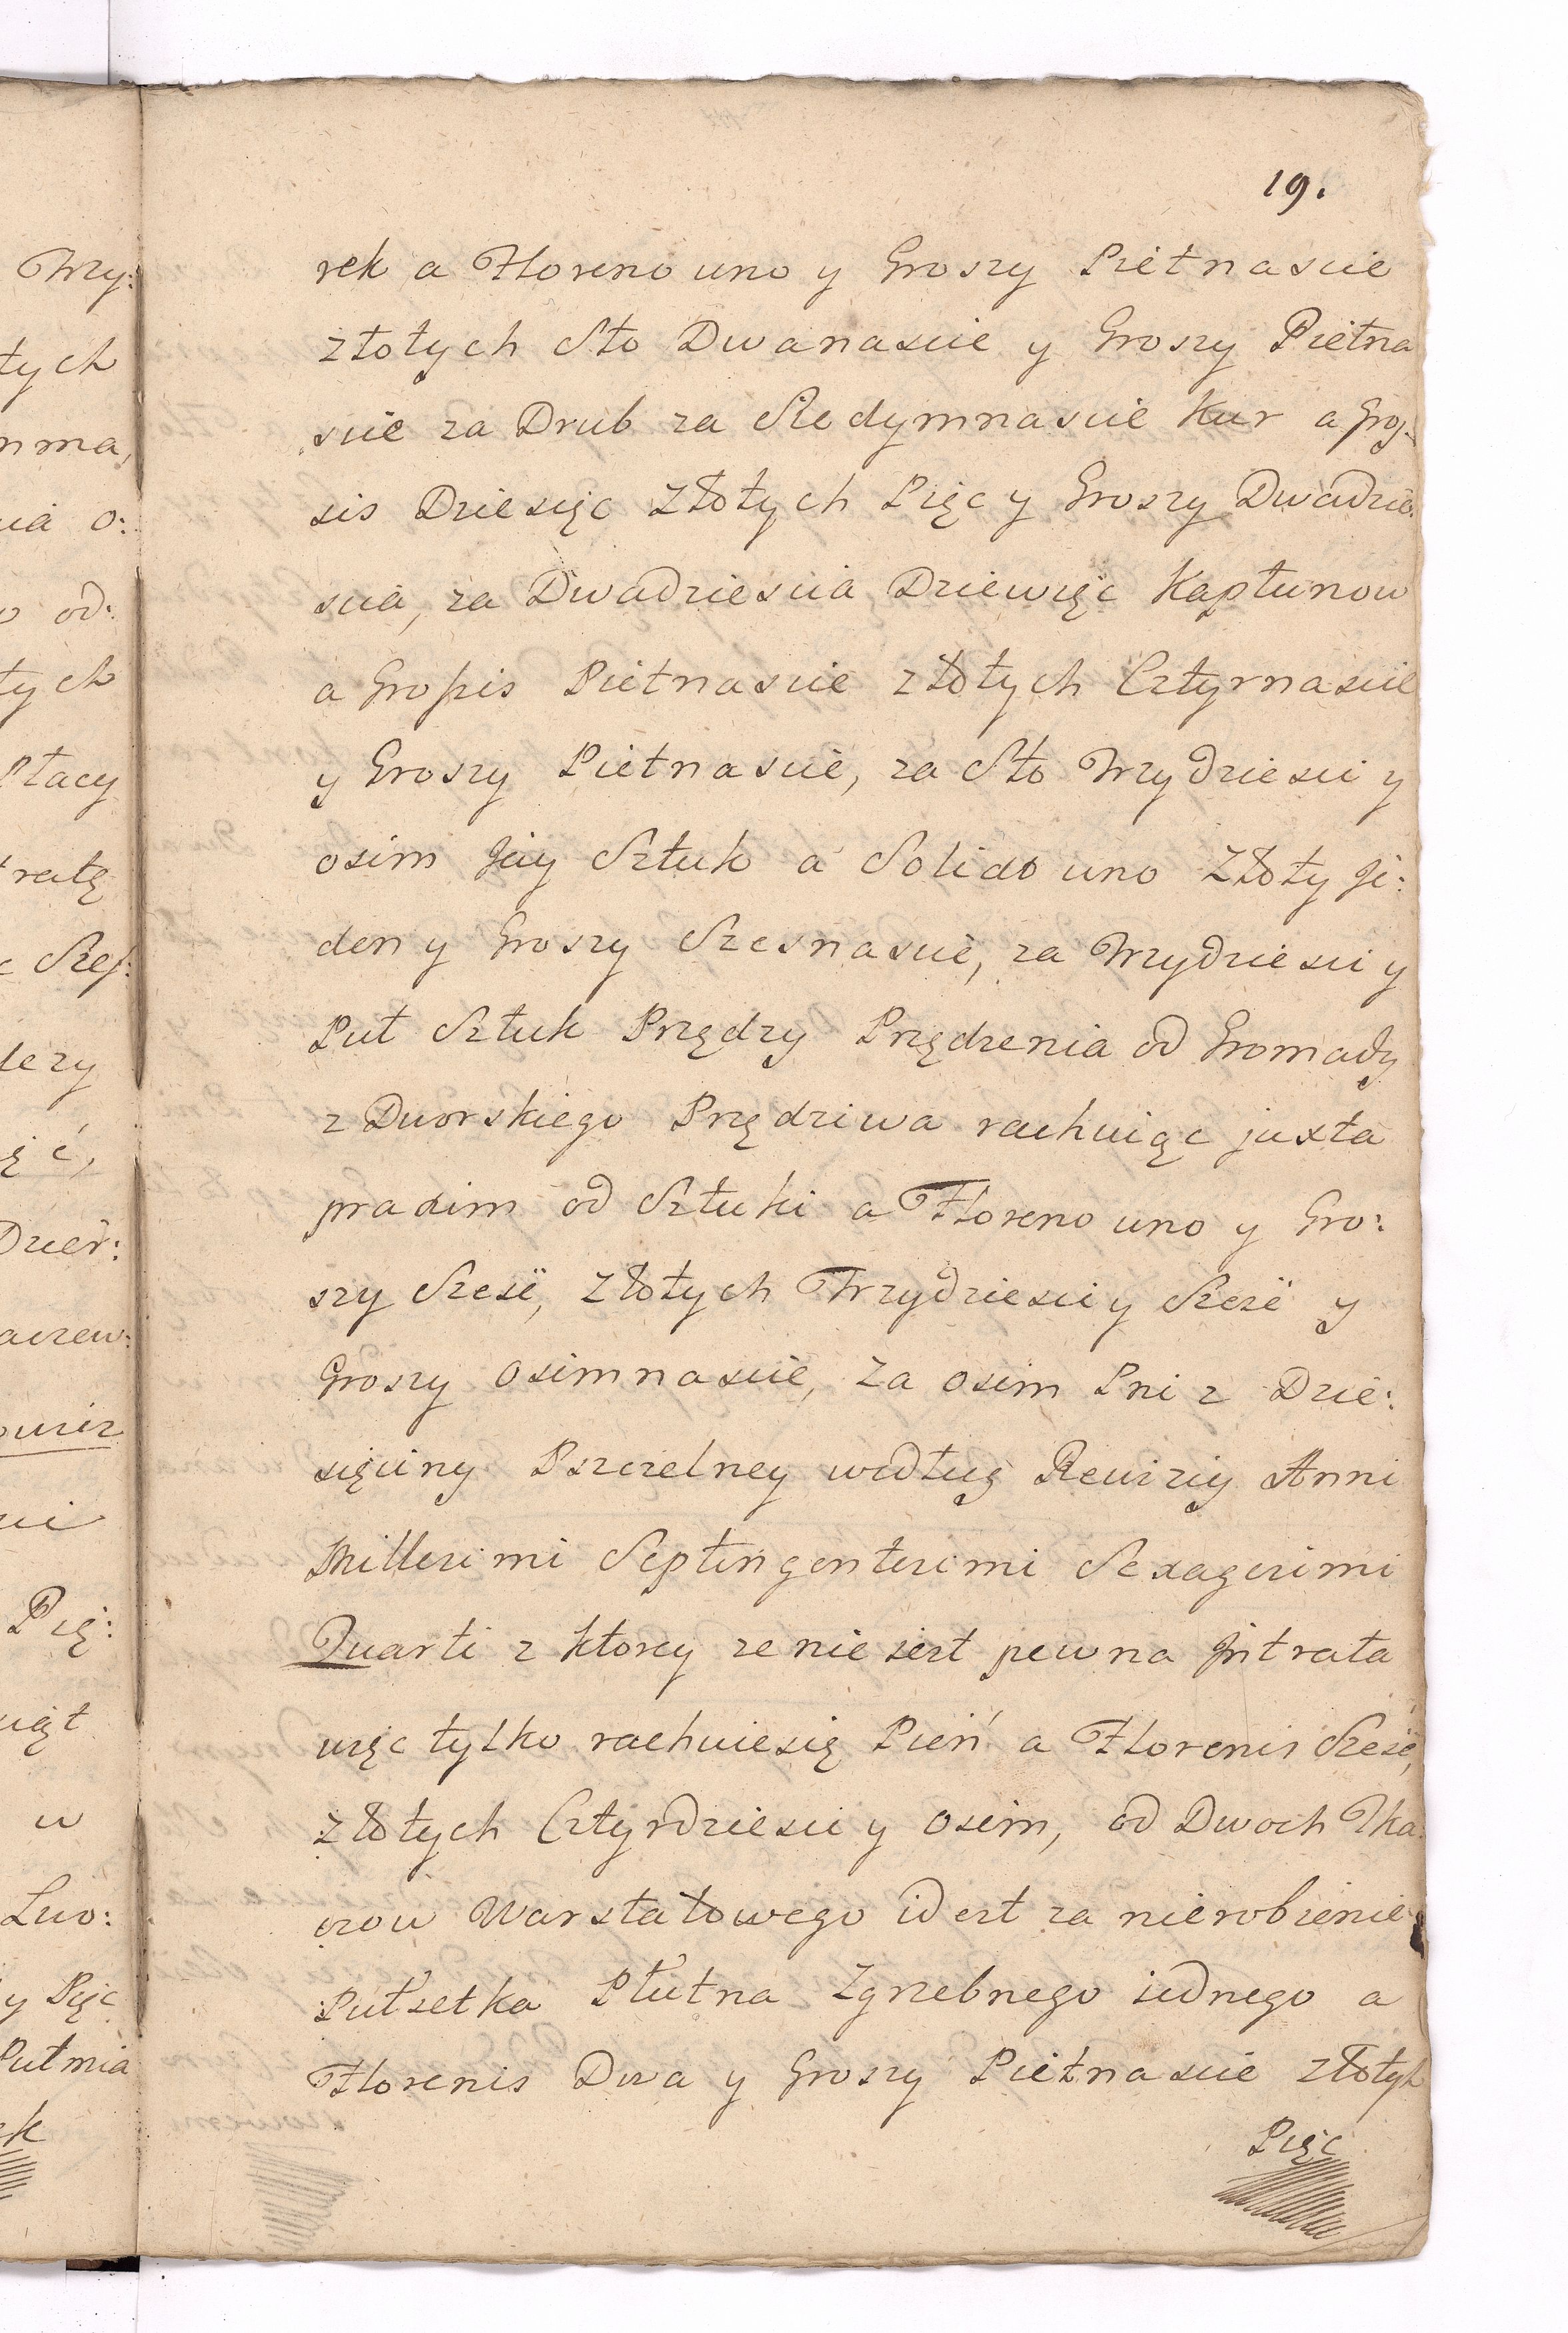 19.
rek a Floreno uno y Groszy Pietnascie
złotych Sto Dwanascie y Groszy Pietna
scie za Drub za Siedymnascie Kur a Gros:
sis Dziesięc Złotych Pięc y Groszy Dwadzie:
scia, za Dwadziescia Dziewięc Kapłunow
a Grossis Pietnascie złotych Cztyrnascie
y Groszy Pietnascie, za Sto Trzydziesci y
osim Jay Sztuk a Solido uno Złoty Je:
den y Groszy Szesnascie, za Trzydziesci y
Puł Sztuk Przędzy Przędzenia od Gromady
z Dworskiego Przędziwa rachuiąc juxta
praxim od Sztuki a Floreno uno y Gro:
szy Szesć, Złotych Trzydziesci y Szesć y
Groszy Osimnascie, Za osim Pni z Dzie:
sięciny Pszczelney według Rewiziy Anni
Millesimi Septingentesimi Sexagesimi
Quarti z ktorey ze nie iest pewna Jntrata
więc tylko rachuiesię Pień a Florenis Szesć,
złotych Cztyrdziesci y Osim, od Dwoch Tka:
czow Warstatowego id est za nierobienie
Pułsetka Płutna Zgrzebnego iednego a
Florenis Dwa y Groszy Pietnascie złotych
Pięc
Trzy:
łych
o od:
tych
Płacy
ratę
Dzier:
Pię:
w
y Pięc
Pułmia